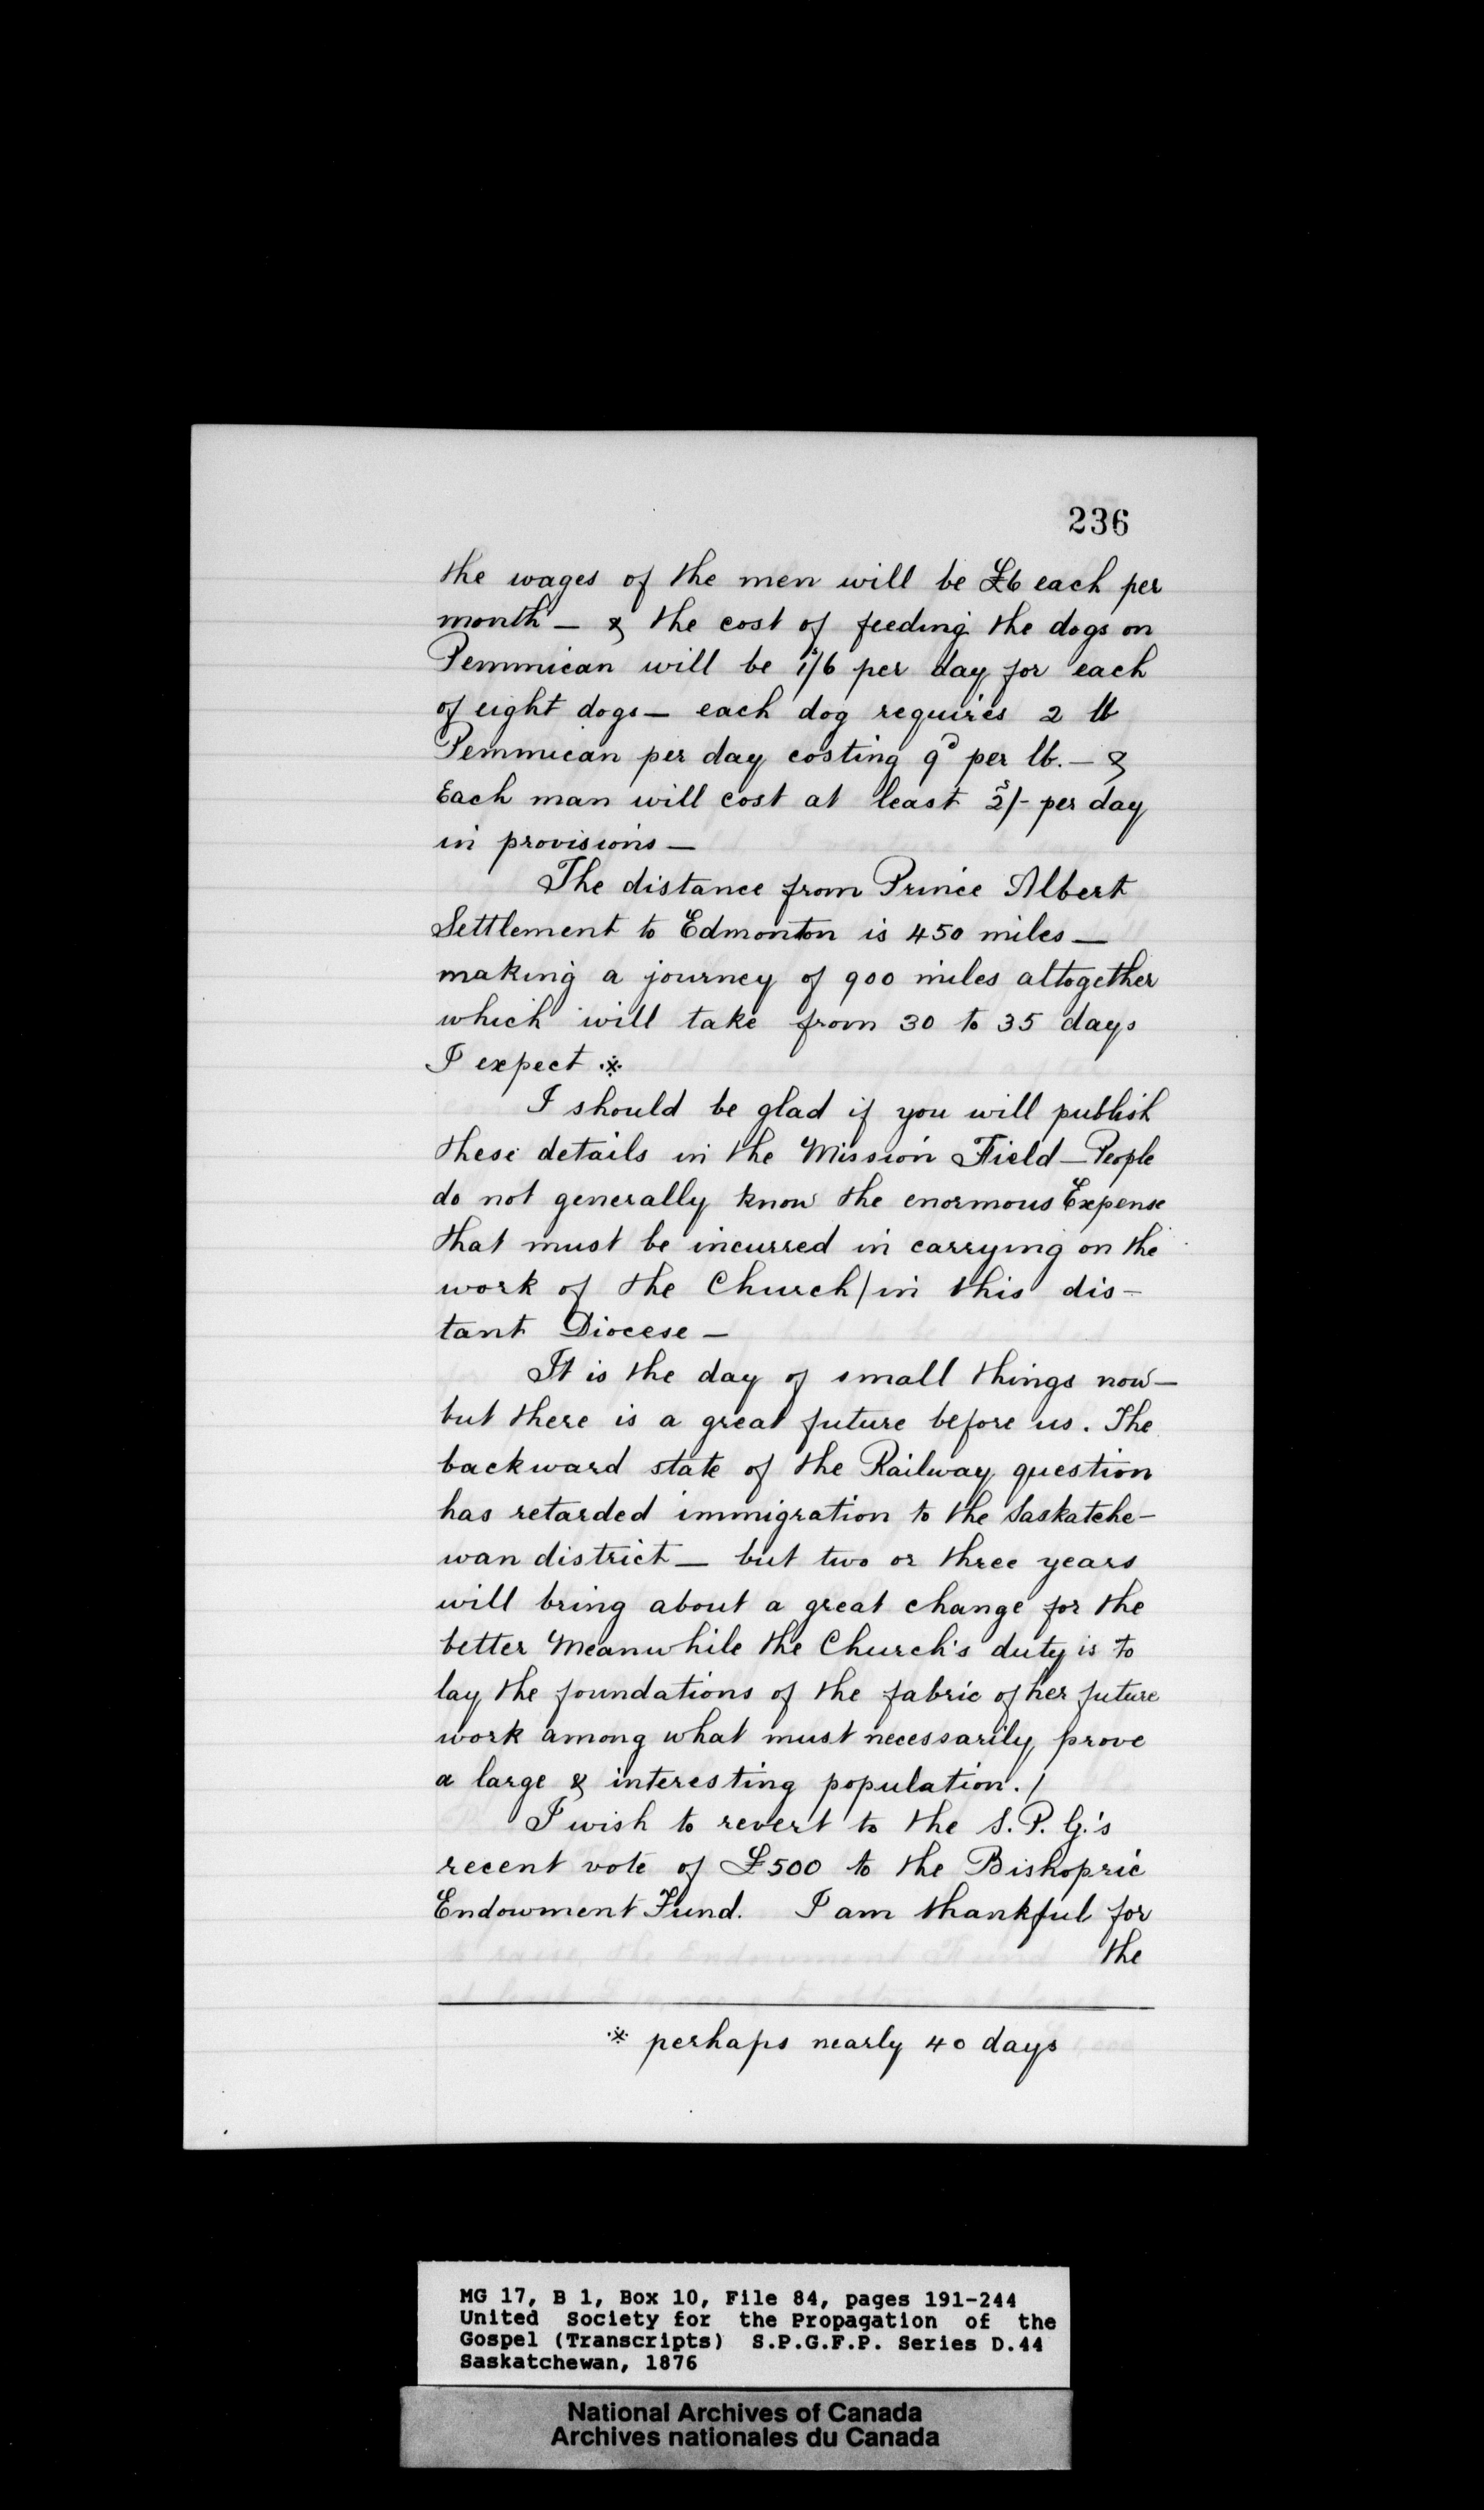 236
the wages of the men will be £6 each per
month — & the cost of feeding the dogs on
Pemmican will be 1/6 per day for each
of eight dogs — each dog requires 2 lb
Pemmican per day costing 9d per lb. — &
Each man will cost at least 2/- per day
in provisions —
The distance from Prince Albert
Settlement to Edmonton is 450 miles —
making a journey of 900 miles altogether
which will take from 30 to 35 days
I expect ※
I should be glad if you will publish
these details in the Mission Field — People
do not generally know the enormous Expense
that must be incurred in carrying on the
work of the Church/in this dis-
tant Diocese —
It is the day of small things now —
but there is a great future before us. The
backward state of the Railway question
has retarded immigration to the Saskatche-
wan district — but two or three years
will bring about a great change for the
better Meanwhile the Church's duty is to
lay the foundations of the fabric of her future
work among what must necessarily prove
a large & interesting population. /
I wish to revert to the S. P. G.'s
recent vote of £500 to the Bishopric
Endowment Fund. I am thankful for
the
※ perhaps nearly 40 days
MG 17, B 1, Box 10, File 84, pages 191-244
United Society for the Propagation of the
Gospel (Transcripts) S.P.G.F.P. Series D.44
Saskatchewan, 1876
National Archives of Canada
Archives nationales du Canada